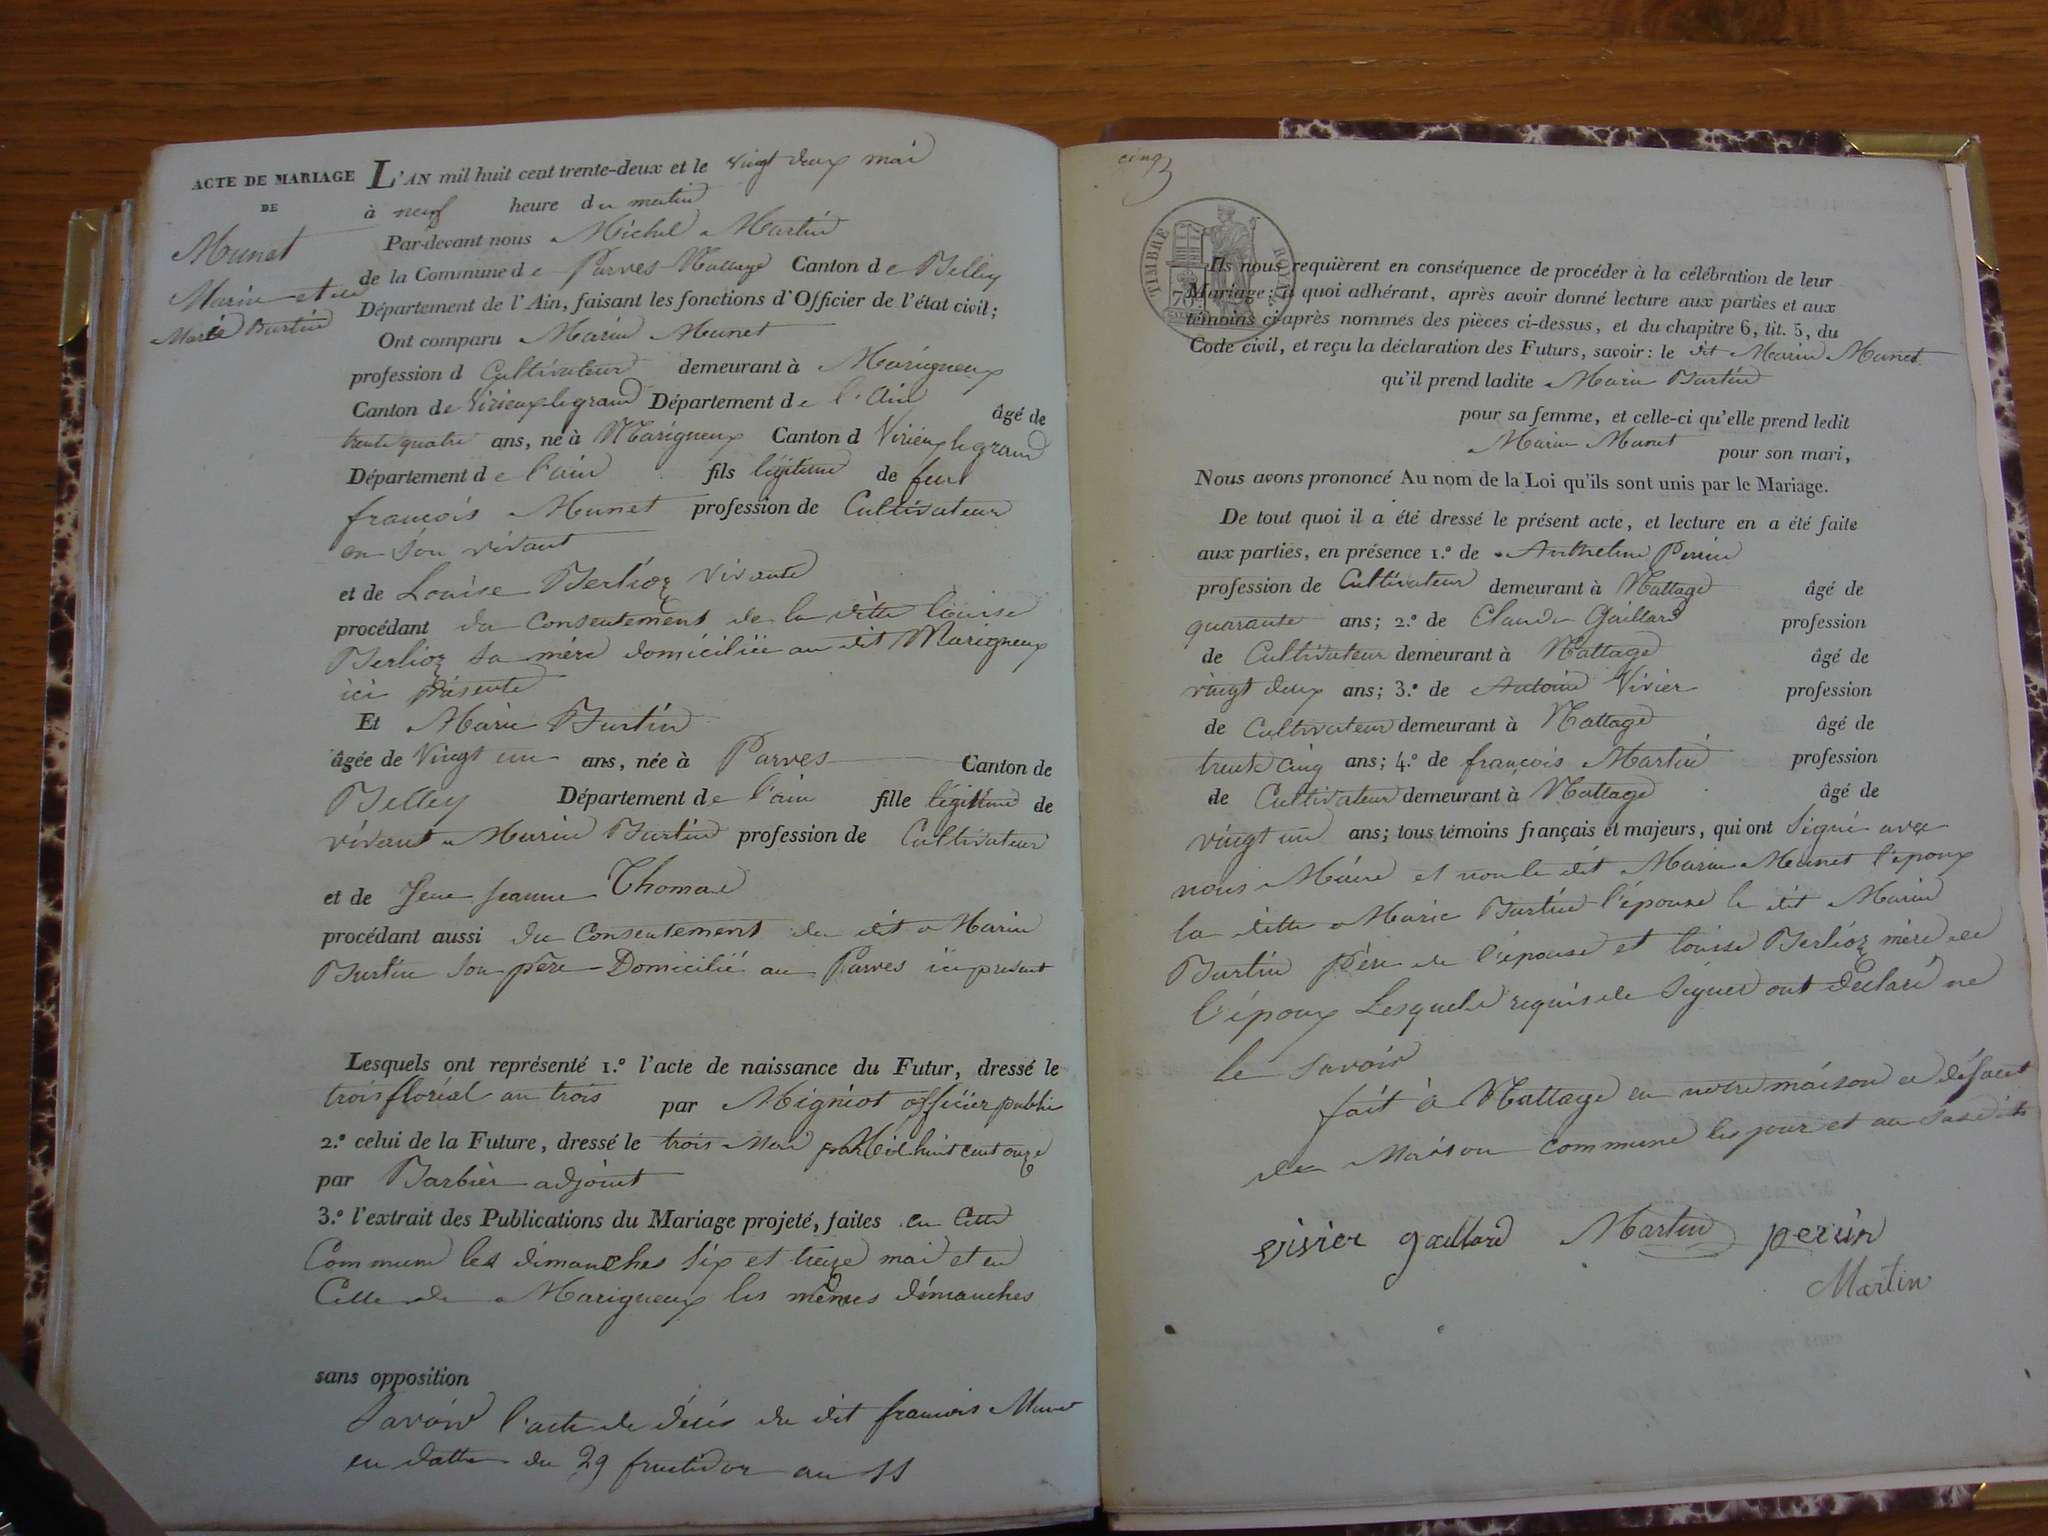 ACTE DE MARIAGE
DE
Munet
Marin et de
Marie Burtin
L'AN mil huit cent trente-deux et le vingt deux mai
à neuf heure du matin
Par-devant nous Michel Martin
de la Commune de Parves Nattage Canton de Belley
Département de l'Ain, faisant les fonctions d'Officier de l'état civil;
Ont comparu Marin Munet
profession d Cultivateur demeurant à Marigneux
Canton de Virieux legrand Département de l'Ain âgé de
trente quatre ans, né à Marigneux Canton d Virieux legrand
Département de l'ain fils légitime de feu
francois Munet profession de Cultivateur
en son vivant
et de Louise Berlioz vivante
procédant du Consentement de la ditte louise
Berlioz sa mère domiciliée au dit Marigneux
ici présente
Et Marie Burtin
âgée de Vingt un ans, née à Parves Canton de
Belley Département de l'ain fille légitime de
vivant Marin Burtin profession de Cultivateur
et de feue jeanne Thomas
procédant aussi du Consentement du dit Marin
Burtin son père Domicilié au Parves ici present
Lesquels ont représenté 1.° l'acte de naissance du Futur, dressé le
trois floréal an trois par Migniot officier public
2.° celui de la Future, dressé le trois Mai Mil huit cent onze
par Barbier adjoint
3.° l'extrait des Publications du Mariage projeté, faites en Cette
Commune les dimanches six et treize mai et en
Celle de Marigneux les mêmes dimanches
sans opposition
Savoir l'acte de décès du dit francois Munet
en datte du 29 fructidor an 11
cinq
TIMBRE ROYAL
70
Ils nous requièrent en conséquence de procéder à la célébration de leur
Mariage; à quoi adhérant, après avoir donné lecture aux parties et aux
témoins ci-après nommés des pièces ci-dessus, et du chapitre 6, tit. 5, du
Code civil, et reçu la déclaration des Futurs, savoir: le dit Marin Munet
qu'il prend ladite Marie Burtin
pour sa femme, et celle-ci qu'elle prend ledit
Marin Munet pour son mari,
Nous avons prononcé Au nom de la Loi qu'ils sont unis par le Mariage.
De tout quoi il a été dressé le présent acte, et lecture en a été faite
aux parties, en présence 1.° de Anthelme Perrin
profession de Cultivateur demeurant à Nattage âgé de
quarante ans; 2.° de Claude Gaillard profession
de Cultivateur demeurant à Nattage âgé de
vingt deux ans; 3.° de Antoine Vivier profession
de Cultivateur demeurant à Nattage âgé de
trente cinq ans; 4.° de françois Martin profession
de Cultivateur demeurant à Nattage âgé de
vingt un ans; tous témoins français et majeurs, qui ont signé avec
nous Maire et non le dit Marin Munet l'époux
la ditte Marie Burtin l'épouse le dit Marin
Burtin père de l'épouse et louise Berlioz mère de
l'époux Lesquels requis de signer ont déclaré ne
le savoir
fait à Nattage en notre maison a défaut
de Maison commune les jour et an susdits
vivier gaillard Martin perrin
Martin